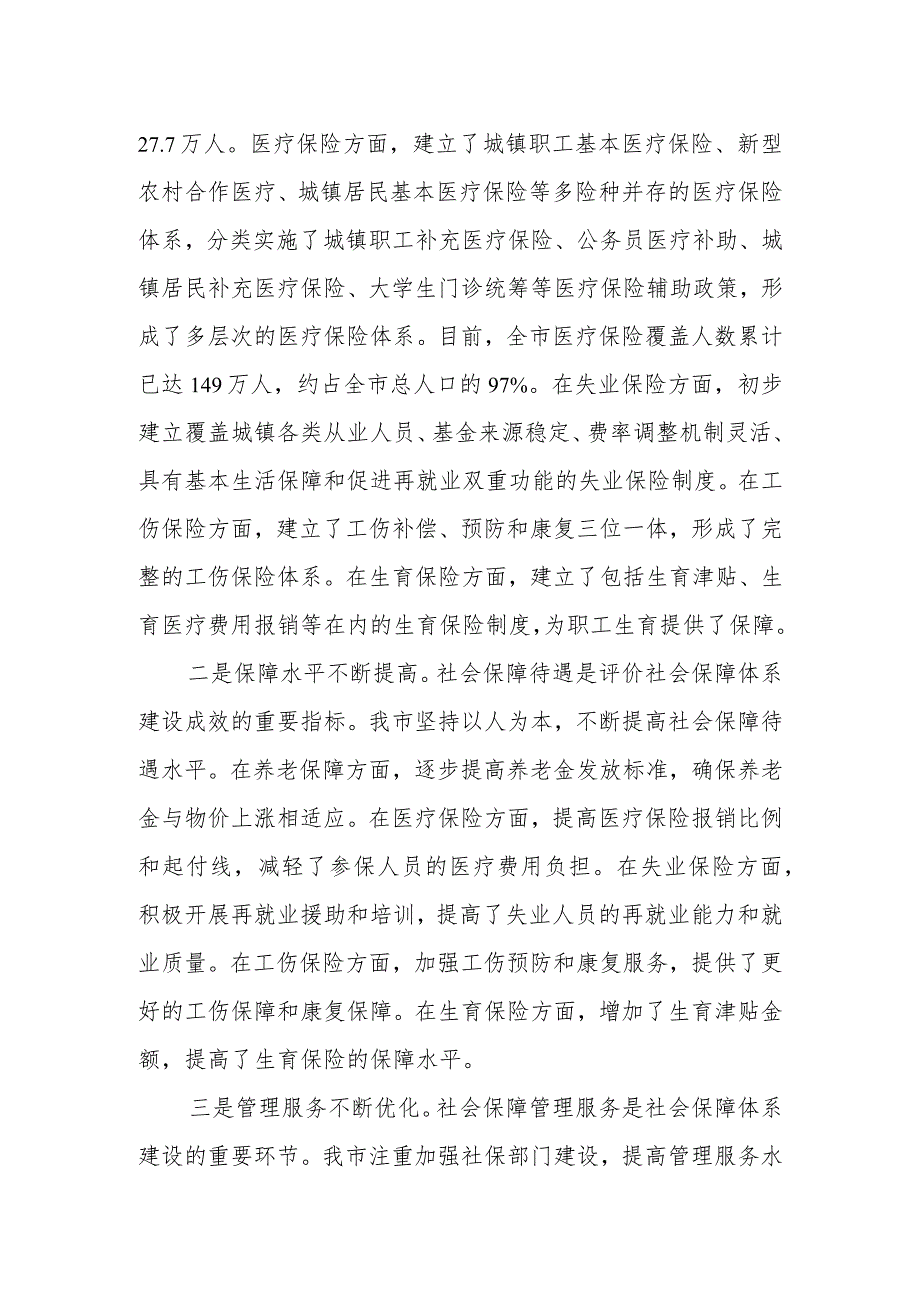 27.7 万人。医疗保险方面，建立了城镇职工基本医疗保险、新型
农村合作医疗、城镇居民基本医疗保险等多险种并存的医疗保险
体系，分类实施了城镇职工补充医疗保险、公务员医疗补助、城
镇居民补充医疗保险、大学生门诊统筹等医疗保险辅助政策，形
成了多层次的医疗保险体系。目前，全市医疗保险覆盖人数累计
已达 149 万人，约占全市总人口的 97%。在失业保险方面，初步
建立覆盖城镇各类从业人员、基金来源稳定、费率调整机制灵活、
具有基本生活保障和促进再就业双重功能的失业保险制度。在工
伤保险方面，建立了工伤补偿、预防和康复三位一体，形成了完
整的工伤保险体系。在生育保险方面，建立了包括生育津贴、生
育医疗费用报销等在内的生育保险制度，为职工生育提供了保障。
二是保障水平不断提高。社会保障待遇是评价社会保障体系
建设成效的重要指标。我市坚持以人为本，不断提高社会保障待
遇水平。在养老保障方面，逐步提高养老金发放标准，确保养老
金与物价上涨相适应。在医疗保险方面，提高医疗保险报销比例
和起付线，减轻了参保人员的医疗费用负担。在失业保险方面，
积极开展再就业援助和培训，提高了失业人员的再就业能力和就
业质量。在工伤保险方面，加强工伤预防和康复服务，提供了更
好的工伤保障和康复保障。在生育保险方面，增加了生育津贴金
额，提高了生育保险的保障水平。
三是管理服务不断优化。社会保障管理服务是社会保障体系
建设的重要环节。我市注重加强社保部门建设，提高管理服务水